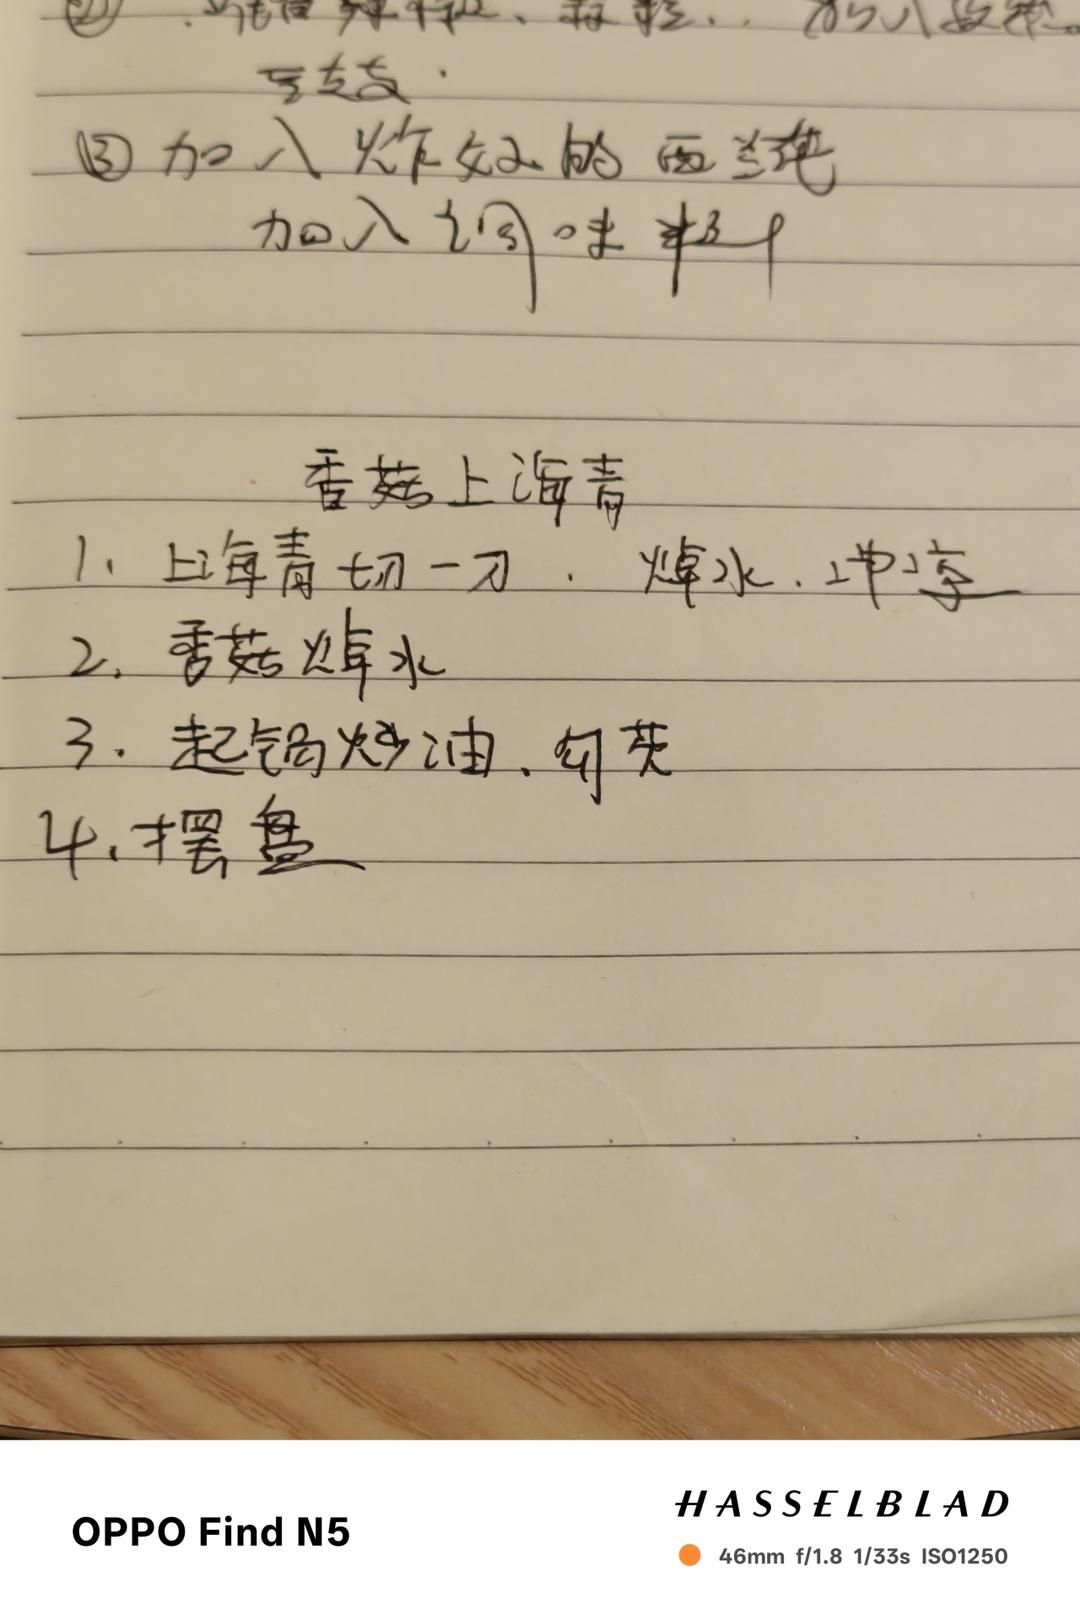 ②
③ 加入炸好的西兰花
加入调味料
香菇上海青
1. 上海青切一刀. 焯水. 冲凉
2. 香菇焯水
3. 起锅炒油. 勾芡
4. 摆盘
OPPO Find N5
HASSELBLAD
46mm f/1.8 1/33s ISO1250